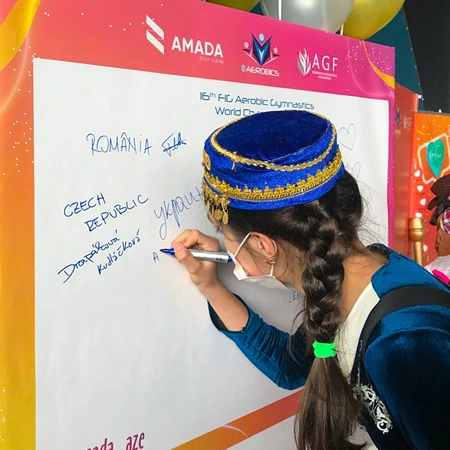 AMADA
AEROBICS
AGF
16th FIG Aerobic Gymnastics
World Ch
ROMÂNIA
CZECH
REPUBLIC
украї
Drapáková
Kudláčková
A
.aze